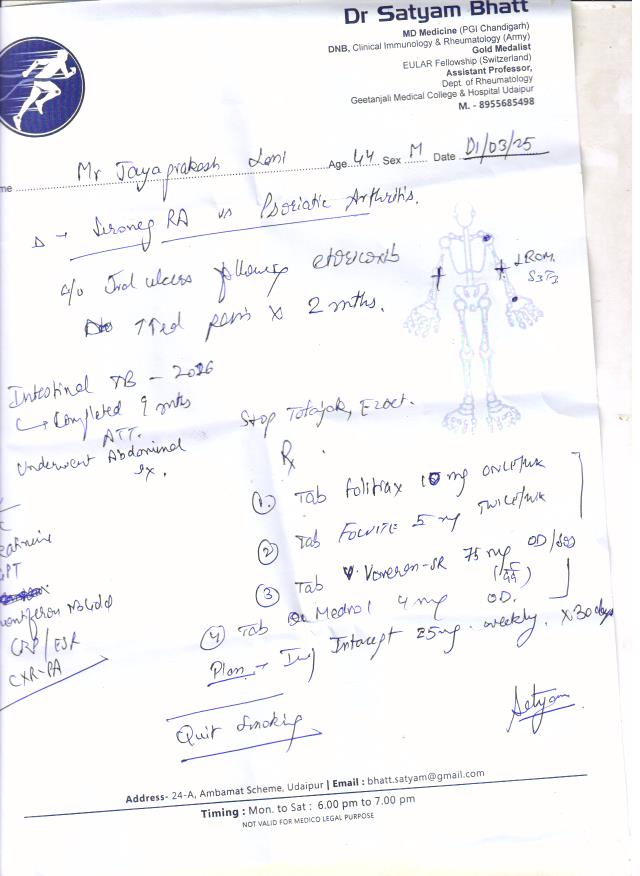 Dr Satyam Bhatt
MD Medicine (PGI Chandigarh)
DNB, Clinical Immunology & Rheumatology (Army)
Gold Medalist
EULAR Fellowship (Switzerland)
Assistant Professor,
Dept. of Rheumatology
Geetanjali Medical College & Hospital Udaipur
M. - 8955685498
me Mr Jayaprakash Age 44 Sex M Date 01/03/25
Δ → Seroneg RA vs Psoriatic Arthritis.
c/o Oral ulcers following etoricoxib
↑ed pain x 2 mths.
↓ROM.
Intestinal TB - 2016
↳ Completed 9 mths
ATT.
Underwent Abdominal
Sx.
Stop Tofajak, Ezoct.
Rx
① Tab Folitrax 10 mg ONCE/WK
② Tab FOLVITE 5 mg TWICE/WK
③ Tab Voveron-SR 75 mg OD/SOS
④ Tab Medrol 4 mg OD.
x 30 days
Plan → Inj Intacept 25mg weekly.
C
eatinine
GPT
uantiferon TB Gold
CRP/ESR
CXR-PA
Quit Smoking
Satyam
Address- 24-A, Ambamat Scheme, Udaipur | Email : bhatt.satyam@gmail.com
Timing : Mon. to Sat : 6.00 pm to 7.00 pm
NOT VALID FOR MEDICO LEGAL PURPOSE